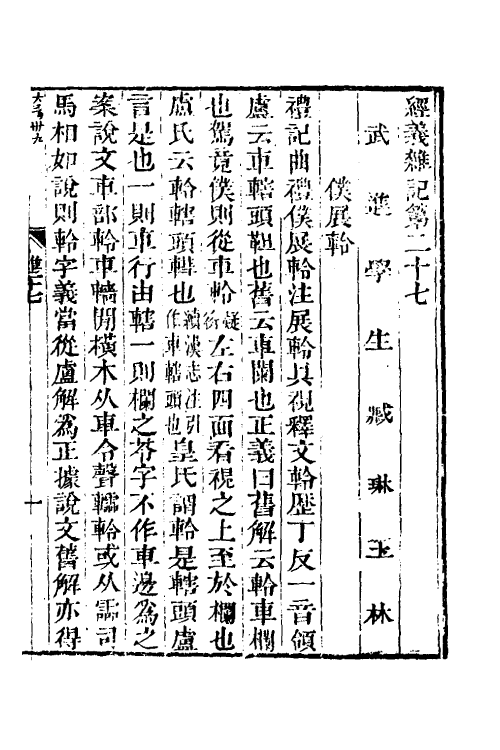 經義雜記第二十七
武進學生臧琳玉林
僕展軨
禮記曲禮僕展軨注展軨具視釋文軨歷丁反一音領
盧云車轄頭靼也舊云車闌也正義曰舊解云軨車欄
也駕竟僕則從車軨疑衍左右四面看視之上至於欄也
盧氏云軨轄頭轊也續漢志注引作車轄頭也皇氏謂軨是轄頭盧
言是也一則車行由轄一則欄之苓字不作車邊為之
案說文車部軨車轖閒橫木从車令聲轜軨或从霝司
馬相如說則軨字義當從盧解為正據說文舊解亦得
十